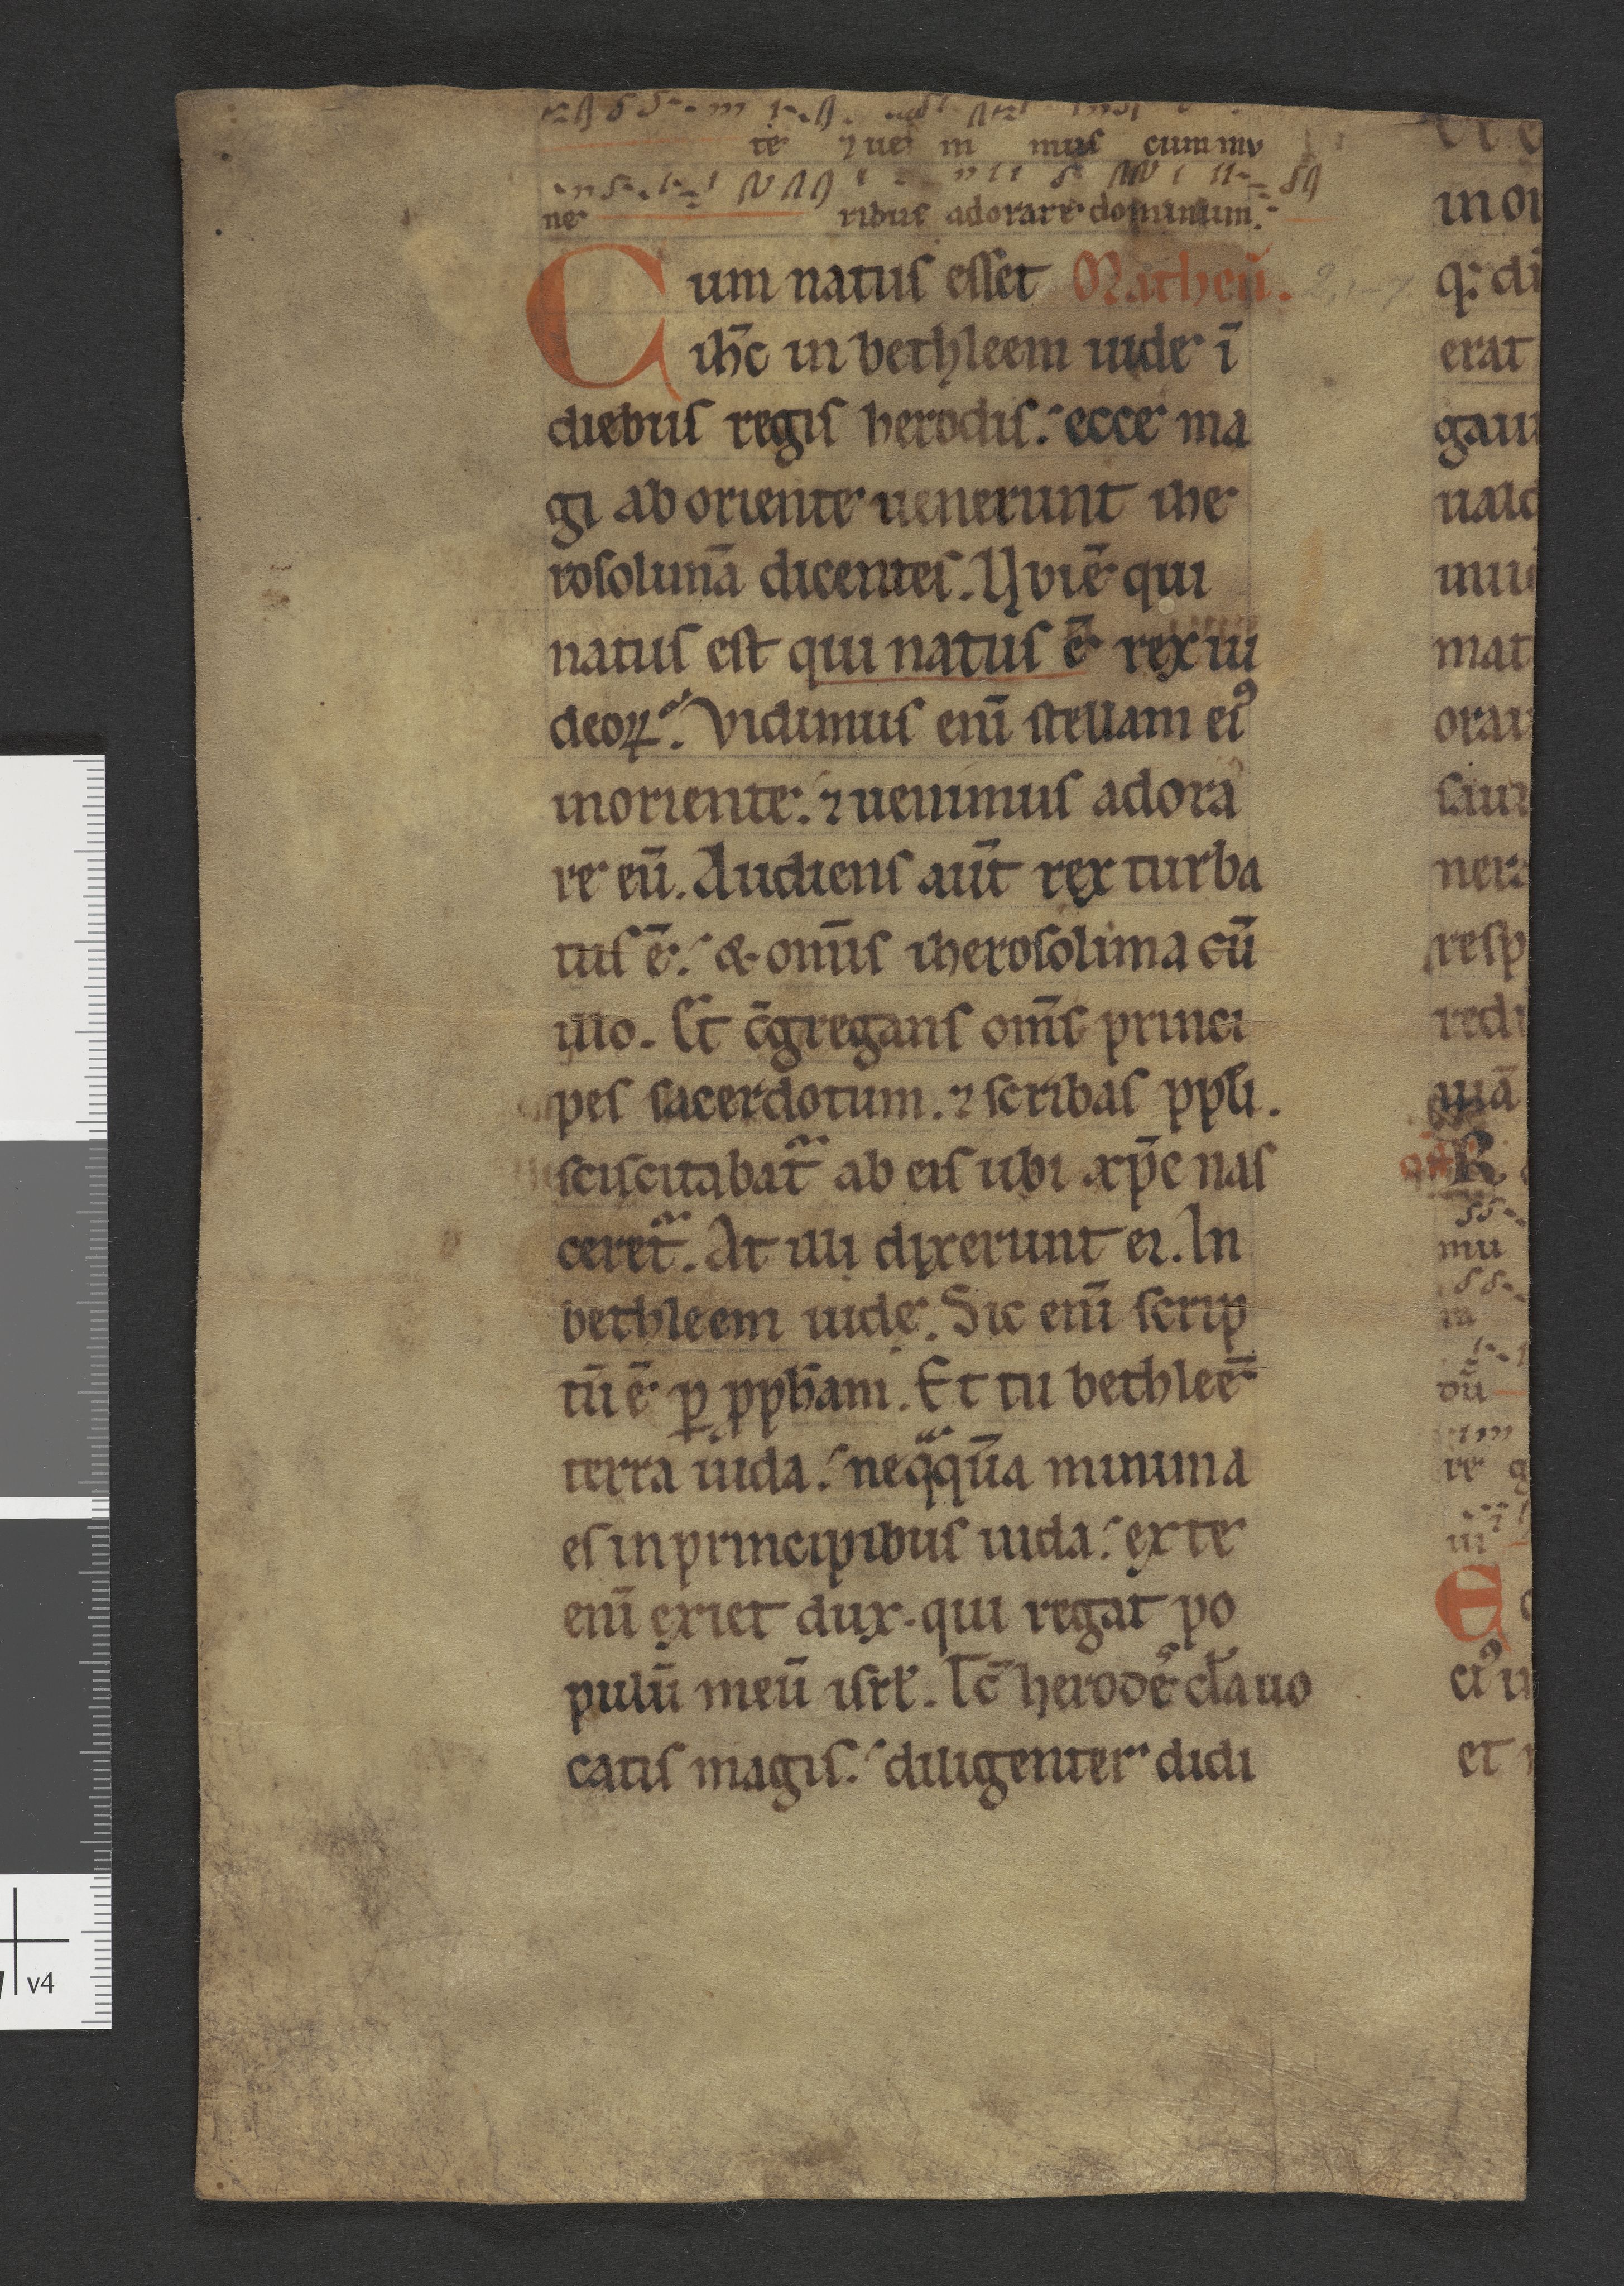 te ⁊ ue ni mus cum mu
ne ribus adorare dominum.
Cum natus esset Matheū.
ih̄c in bethleem iude ī
diebus regis herodis. ecce ma
gi ab oriente uenerunt ihe
rosolimā dicentes. Vbi ē qui
natus est qui natus ē rex iu
deoꝝ. Vidimus eni̅ stellam eiꝰ
in oriente. ⁊ uenimus adora
re eū. Audiens aūt rex turba
tus ē. & om̄is iherosolima cū
illo. Et c̄gregans om̄s princi
pes sacerdotum. ⁊ scribas ppl̄i.
sciscitabat᷑ ab eis ubi xp̄c nas
ceret᷑. At illi dixerunt ei. In
bethleem iude. Sic eni̅ scrip
tū ē ꝑ ꝓph̄am. Et tu bethleē
terra iuda. neq̄quā minima
es in principibus iuda. ex te
eni̅ exiet dux. qui regat po
pulū meū isrł. Tc̄ herodes cla̅ uo
catis magis. diligenter didi
in or
q: di
erat
gau
uald
inue
mat
orau
saur
nera
resp
redi
uiā
mu
ra
dū
re g
ui
E
eiꝰ u
et